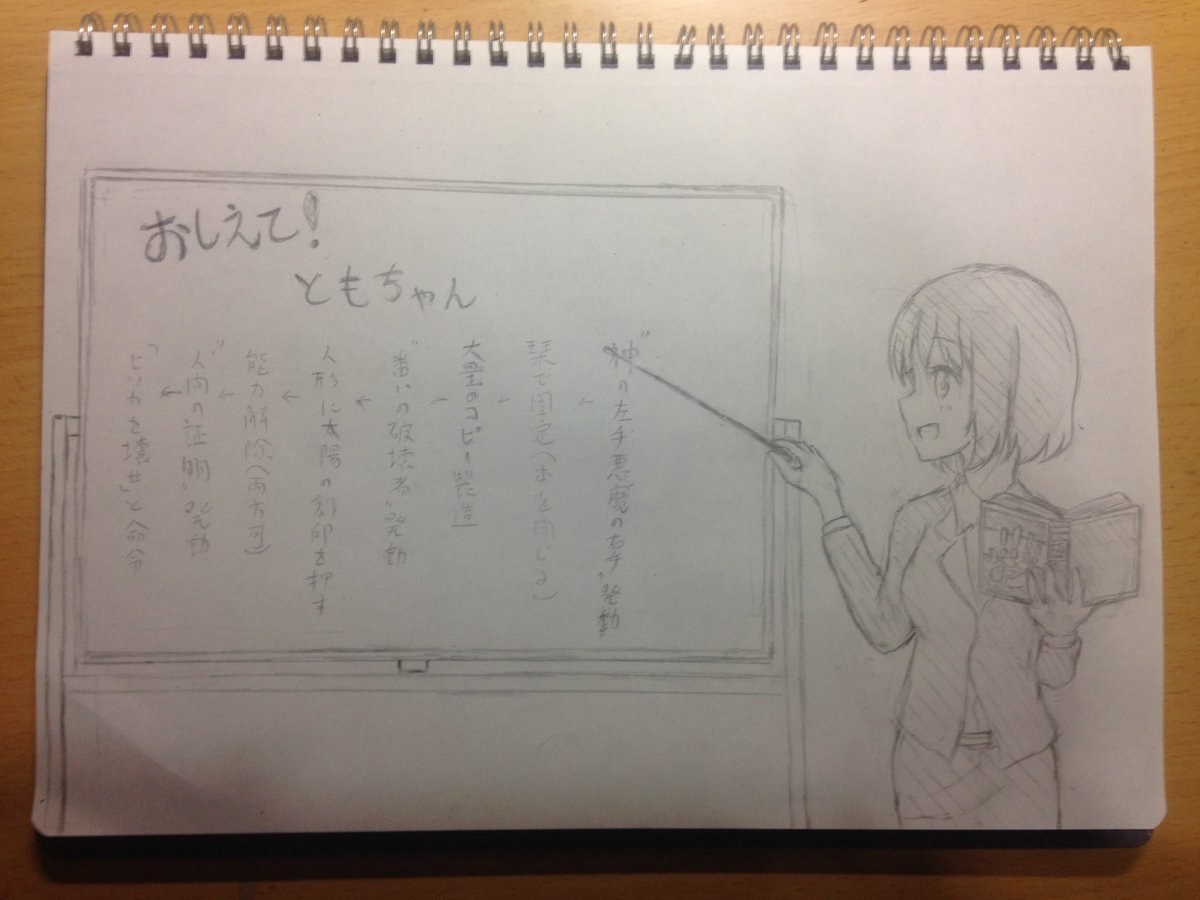 おしえて!
ともちゃん
"神の左手悪魔の右手"発動
↓
栞で固定(本を閉じる)
↓
大量のコピー製造
↓
"番いの破壊者"発動
↓
人形に太陽の刻印を押す
↓
能力解除(両方可)
↓
"人間の証明"発動
↓
「ヒソカを壊せ」と命令